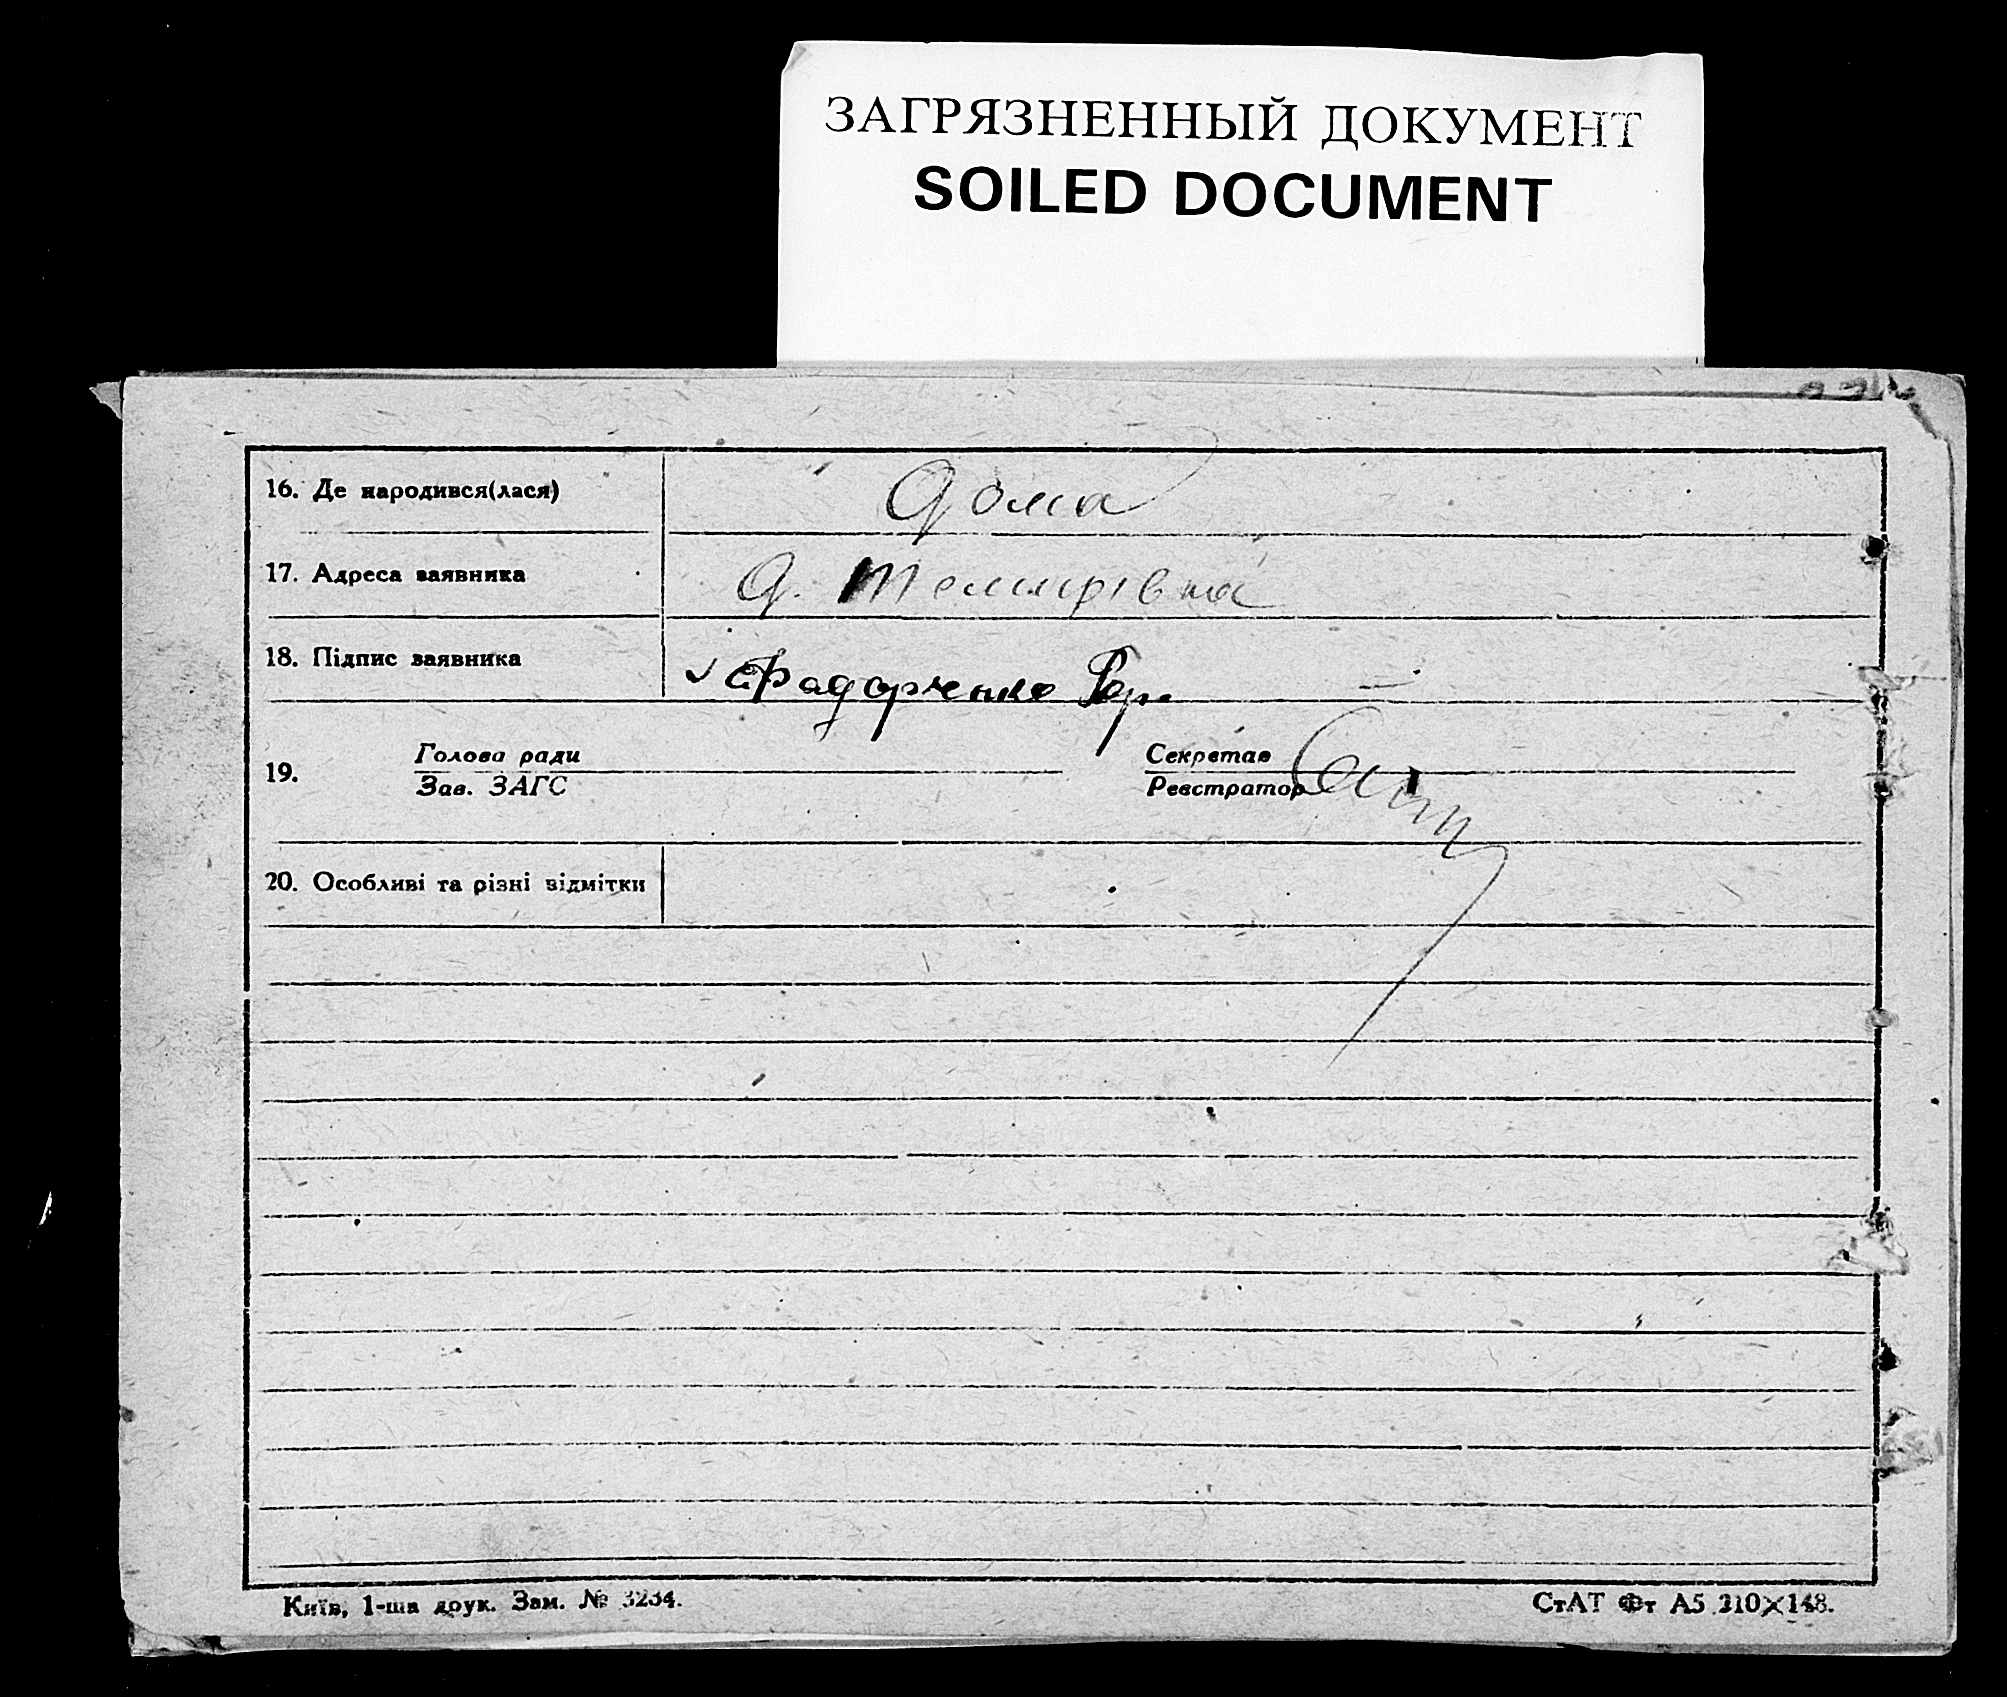 ЗАГРЯЗНЕННЫЙ ДОКУМЕНТ
SOILED DOCUMENT
16. Де народився(лася) Дома
17. Адреса заявника Д.
18. Підпис заявника
19. Голова ради Секретар
Зав. ЗАГС Реєстратор
20. Особливі та різні відмітки
Київ, 1-ша друк. Зам. № 3234. СтАТ Фт А5 210×148.